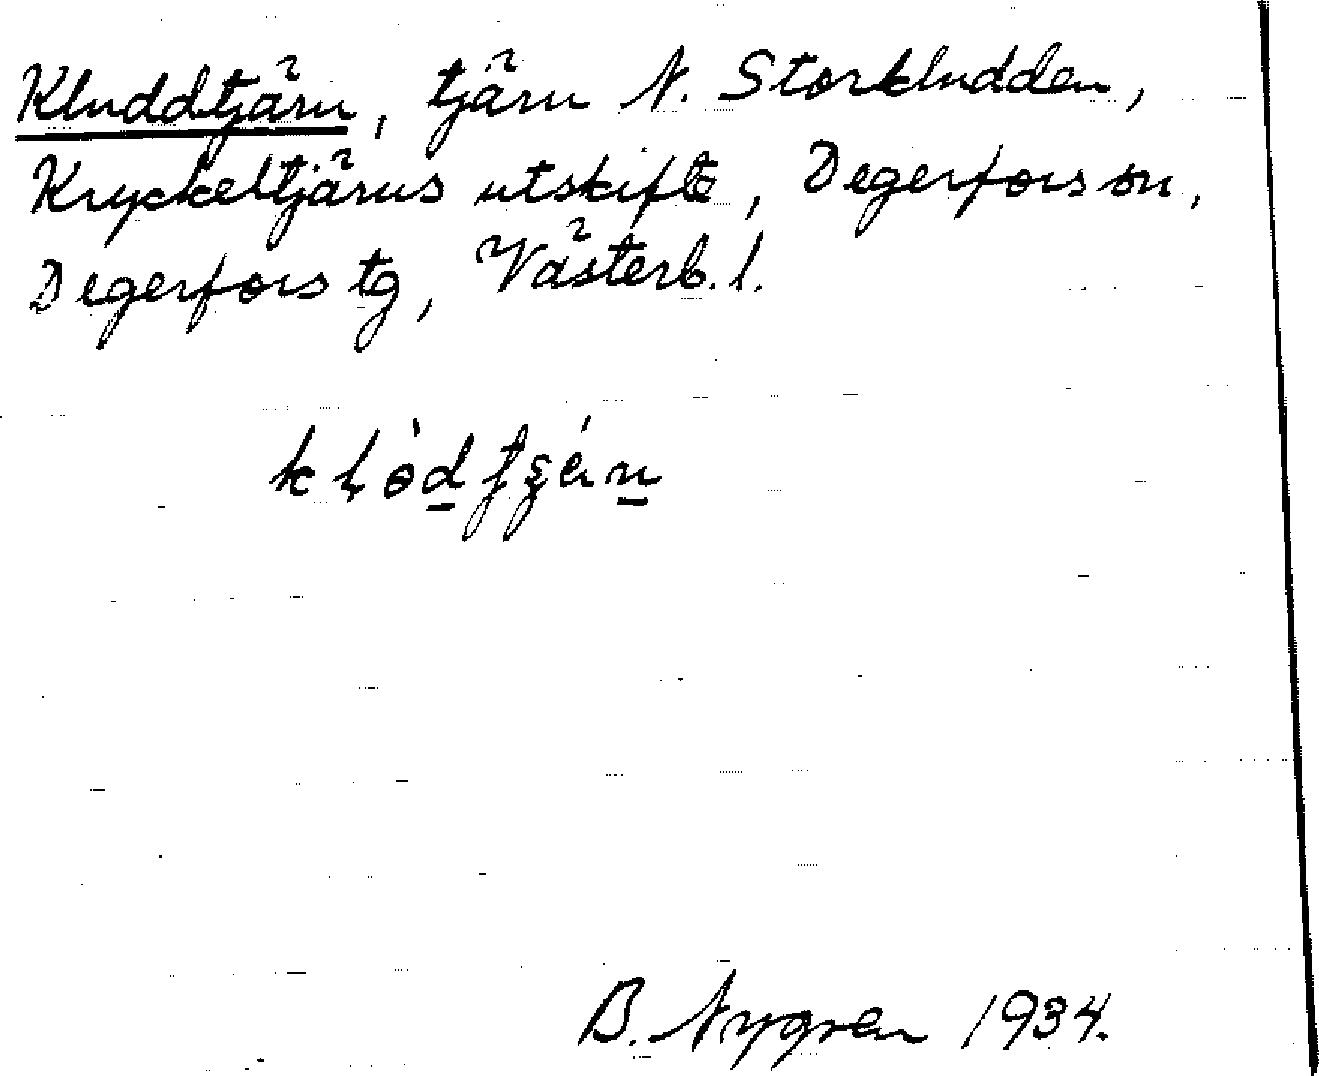 Kluddtjärn, tjärn N. Storkludden,
Kryckeltjärns utskifte, Degerfors sn,
Degerfors tg, Västerb. l.
B. Nygren 1934.